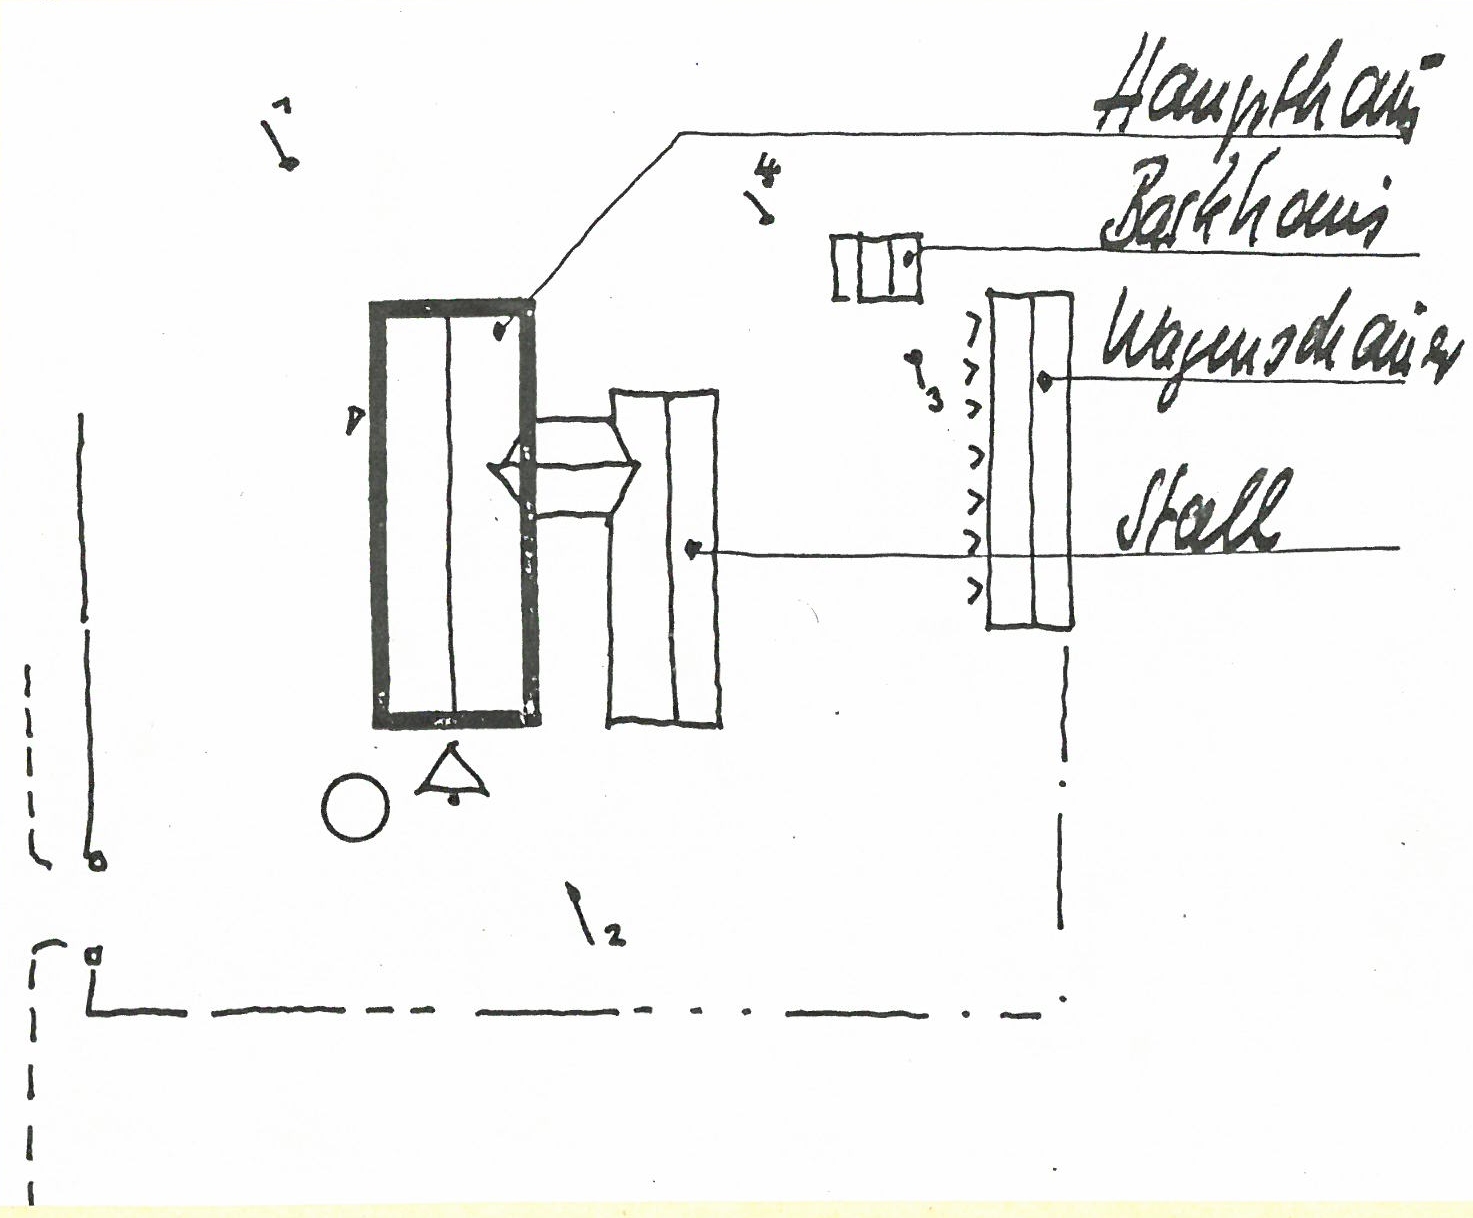 1
Haupthaus
4
Backhaus
Wagenschauer
3
Stall
2